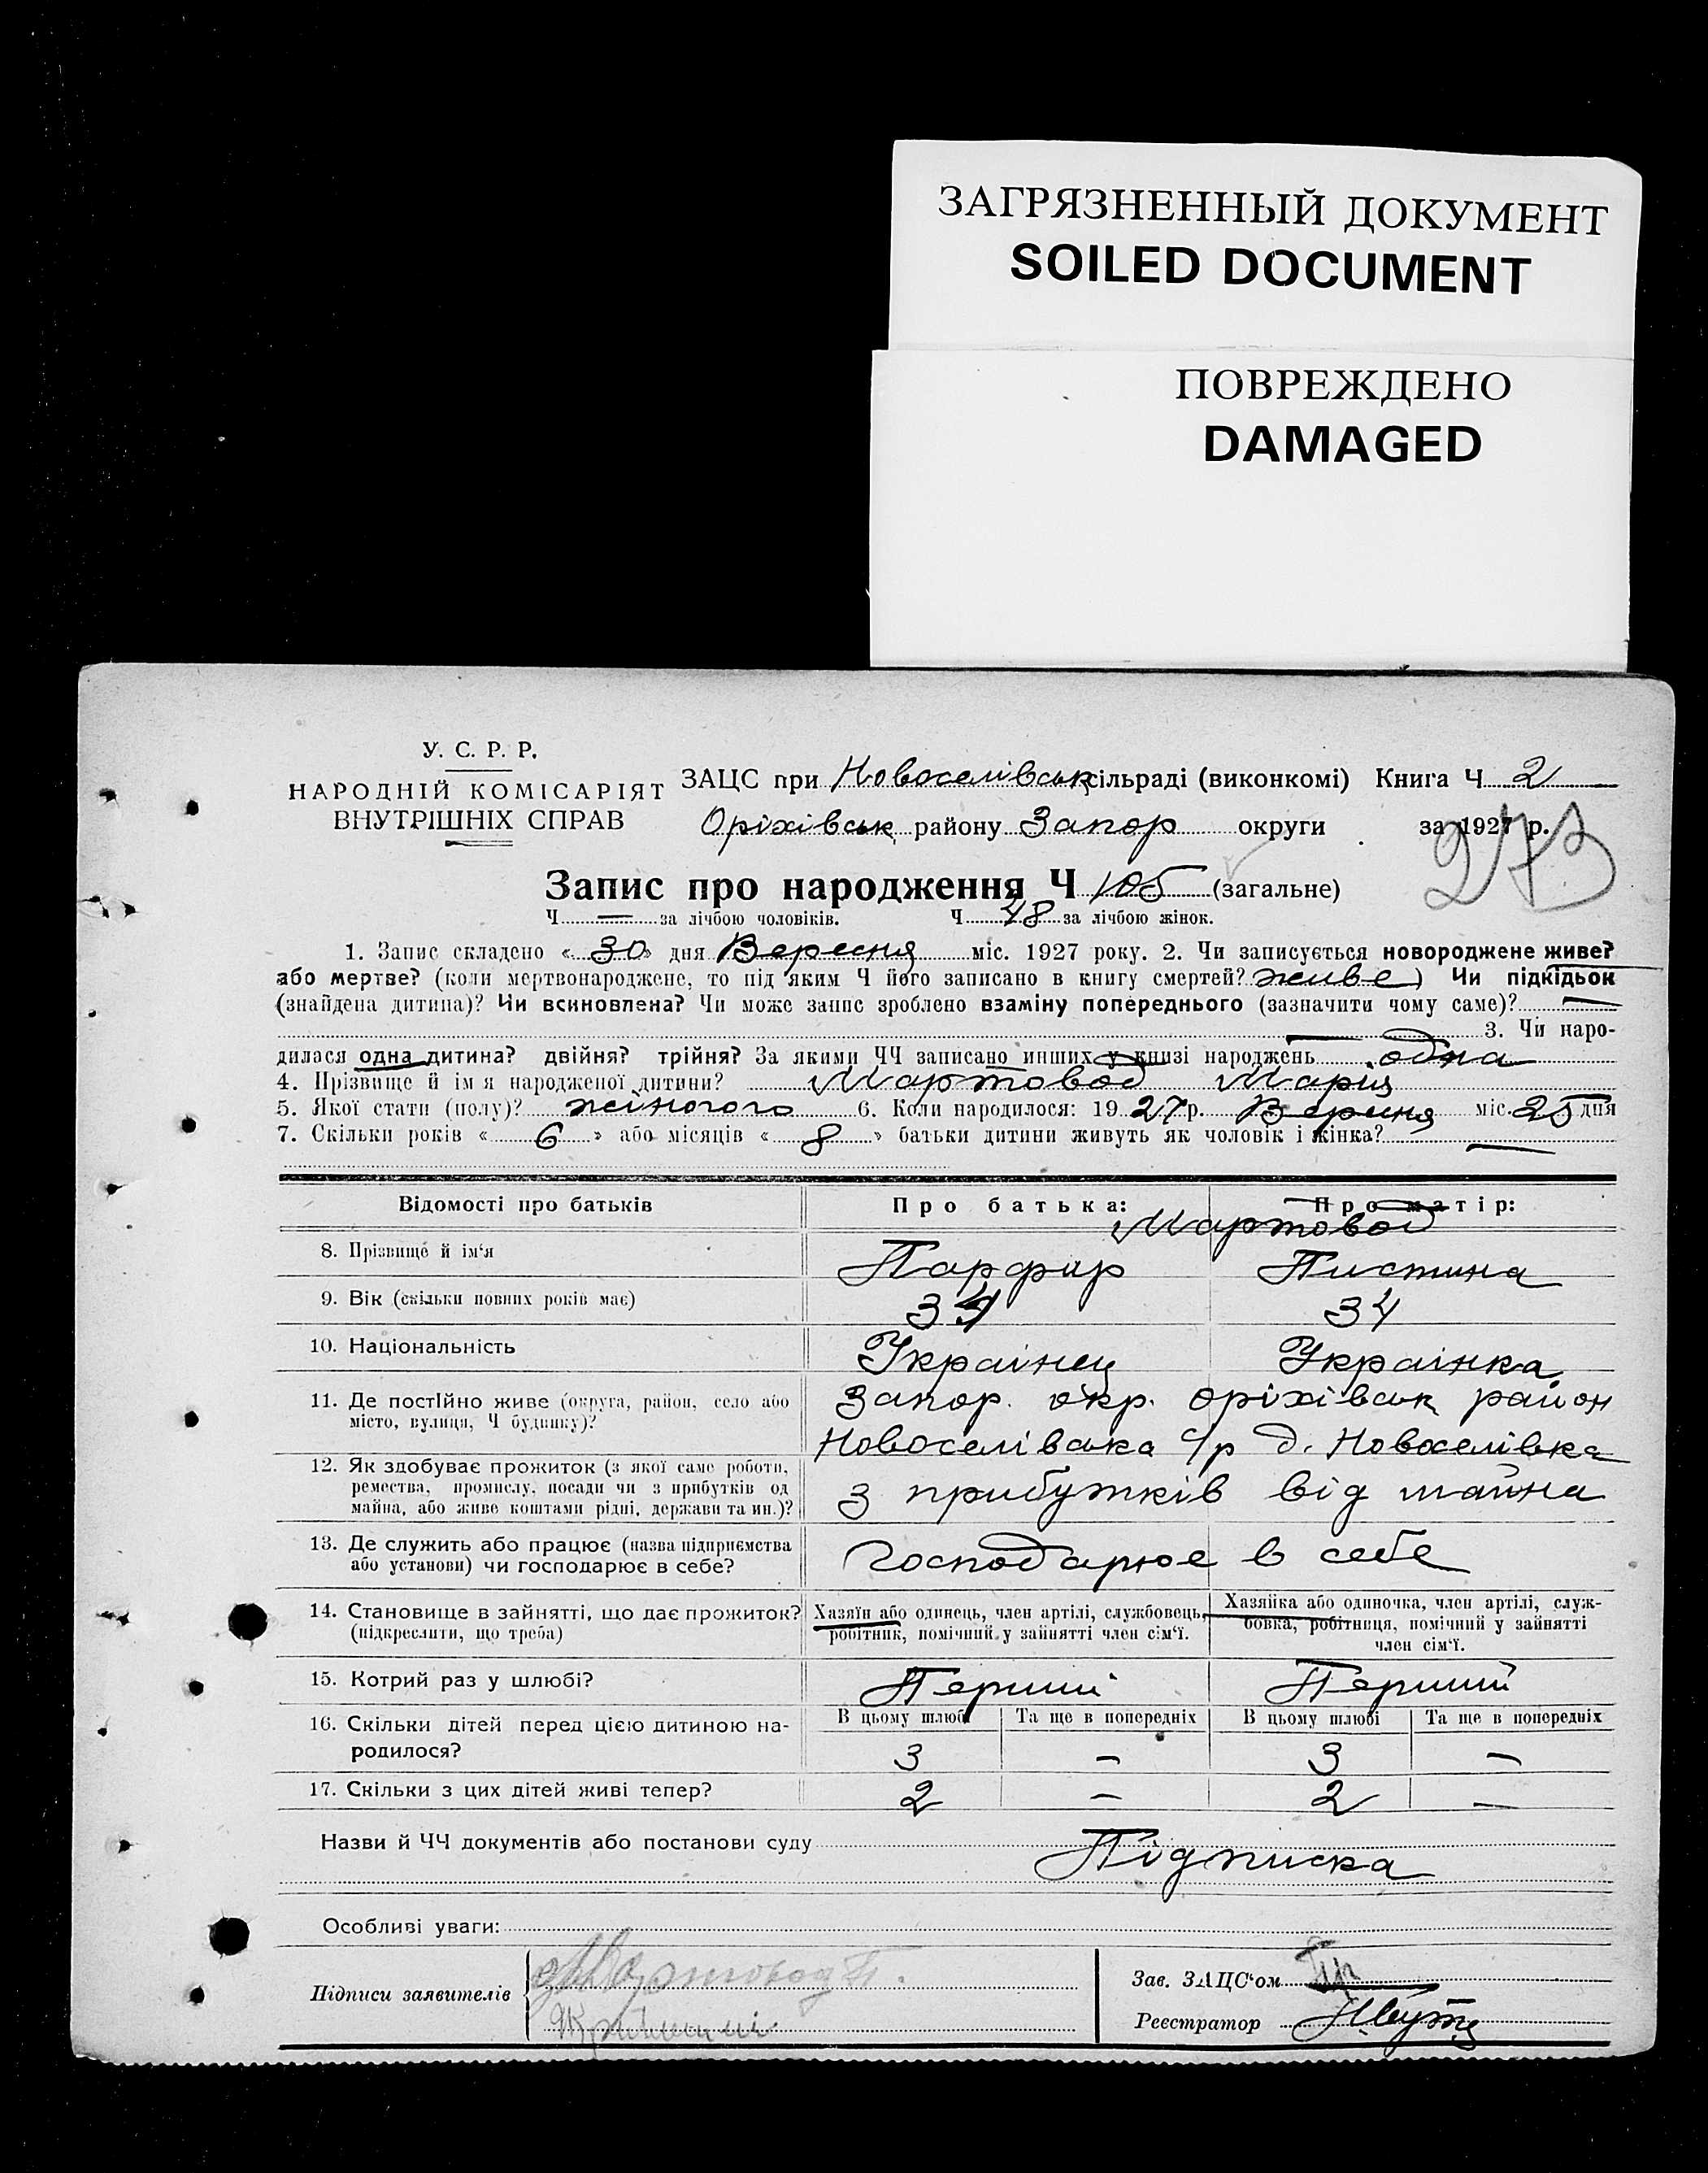 ЗАГРЯЗНЕННЫЙ ДОКУМЕНТ
SOILED DOCUMENT
ПОВРЕЖДЕНО
DAMAGED
У. С. Р. Р.
НАРОДНІЙ КОМІСАРІЯТ
ВНУТРІШНІХ СПРАВ
ЗАЦС при Новоселівськ сільраді (виконкомі) Книга Ч 2
Оріхівськ району Запор округи за 1927 р.
273
Запис про народження Ч 105 (загальне)
Ч — за лічбою чоловіків. Ч 48 за лічбою жінок.
1. Запис складено « 30 » дня Вересня міс. 1927 року. 2. Чи записується новороджене живе?
або мертве? (коли мертвонароджене, то під яким Ч його записано в книгу смертей? живе ) Чи підкідьок
(знайдена дитина)? Чи всиновлена? Чи може запис зроблено взаміну попереднього (зазначити чому саме)? —
— 3. Чи наро-
дилася одна дитина? двійня? трійня? За якими ЧЧ записано инших у книзі народжень одна
4. Прізвище й ім я народженої дитини? Мартовод Марія
5. Якої стати (полу)? жіночого 6. Коли народилося: 19 27 р. Вересня міс. 25 дня
7. Скільки років « 6 » або місяців « 8 » батьки дитини живуть як чоловік і жінка? —
Відомості про батьків Про батька: Про матір:
Мартовод
8. Прізвище й ім'я Парфир Пистина
9. Вік (скільки повних років має) 34 34
10. Національність Украінец Украінка
11. Де постійно живе (округа, район, село або місто, вулиця, Ч будинку)? Запор. окр. Оріхівськ район
Новоселівська с/р д. Новоселівка
12. Як здобуває прожиток (з якої саме роботи,
ремества, промислу, посади чи з прибутків од
майна, або живе коштами рідні, держави та ин.)? З прибутків від майна
13. Де служить або працює (назва підприємства
або установи) чи господарює в себе? Господарює в себе
14. Становище в зайнятті, що дає прожиток?
(підкреслити, що треба)
Хазяїн або одинець, член артілі, службовець,
робітник, помічний у зайнятті член сім'ї.
Хазяйка або одиночка, член артілі, служ-
бовка, робітниця, помічний у зайнятті
член сім'ї.
15. Котрий раз у шлюбі? Перший Перший
16. Скільки дітей перед цією дитиною на-
родилося?
В цьому шлюбі Та ще в попередніх В цьому шлюбі Та ще в попередніх
3 — 3 —
17. Скільки з цих дітей живі тепер? 2 — 2 —
Назви й ЧЧ документів або постанови суду Підписка
Особливі уваги:
Підписи заявителів Мартовод П.
Зав. ЗАЦС'ом
Реєстратор